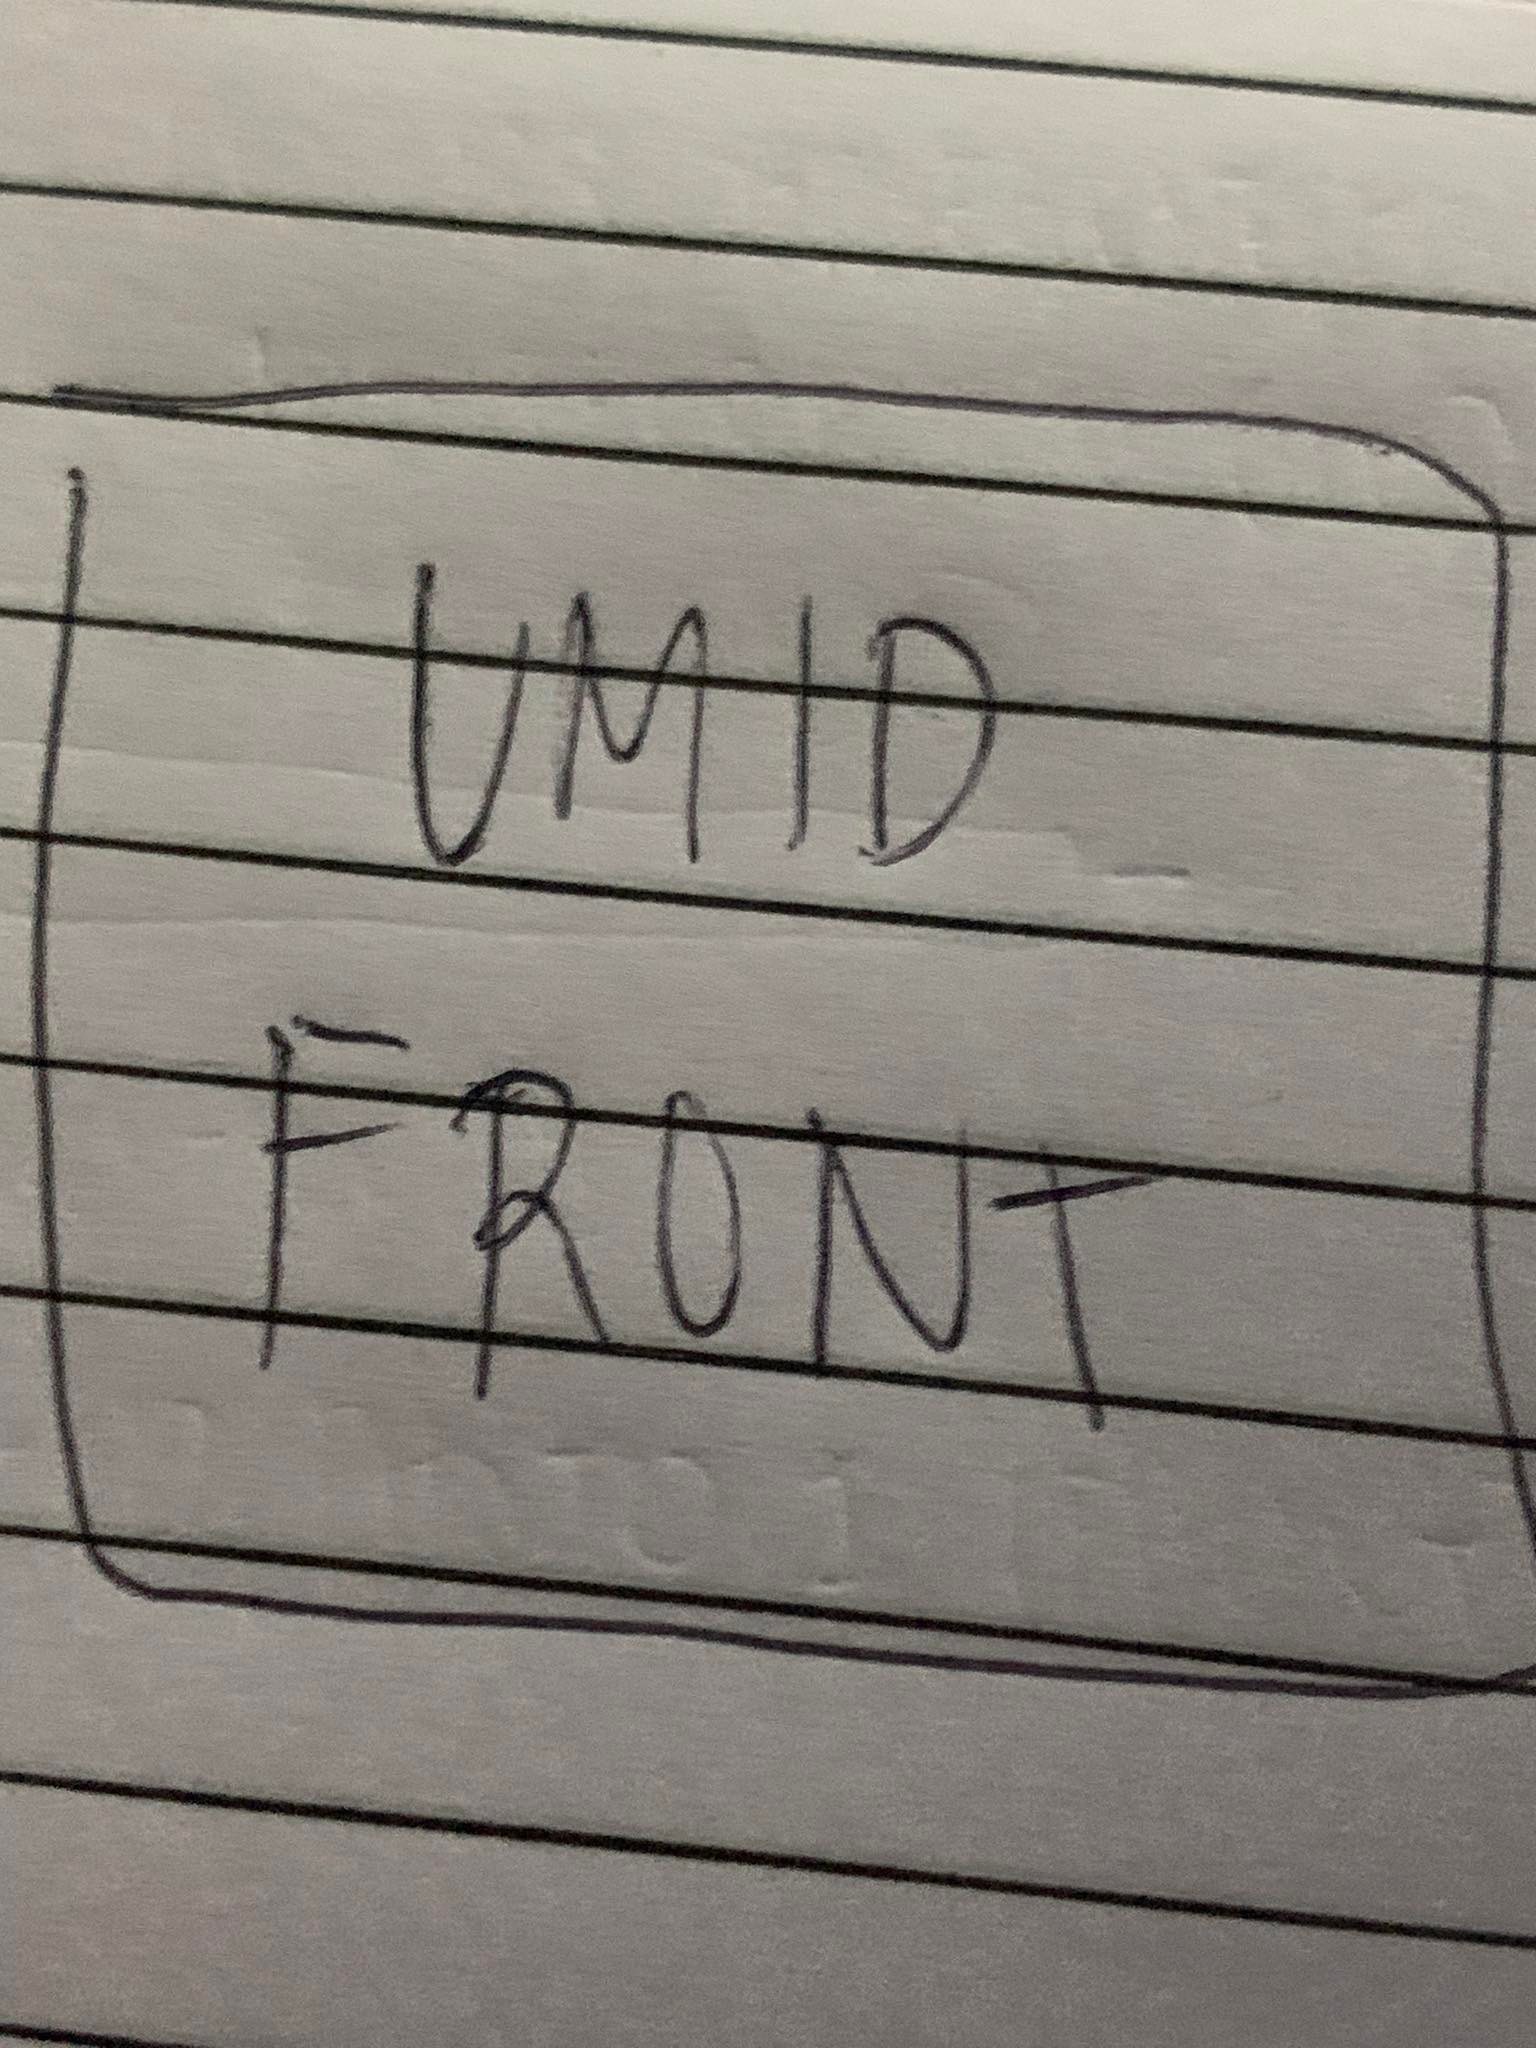 UMID
FRONT